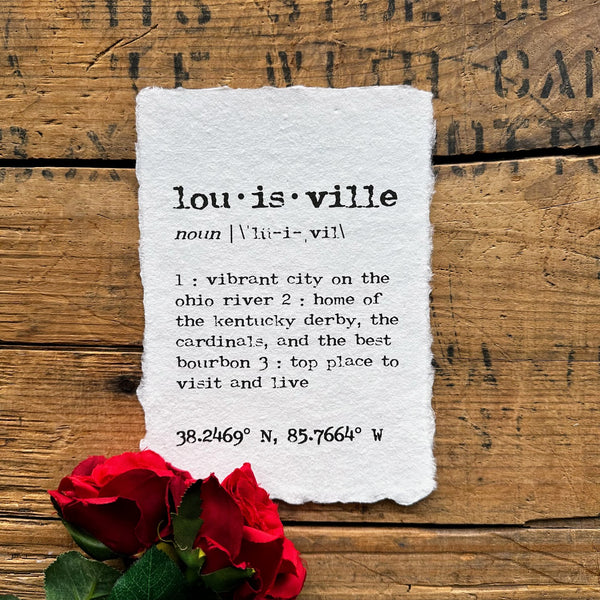 STOP OF
WITH CAN
lou·is·ville
noun |\ˈlü-i-ˌvil\
1 : vibrant city on the
ohio river 2 : home of
the kentucky derby, the
cardinals, and the best
bourbon 3 : top place to
visit and live
38.2469° N, 85.7664° W